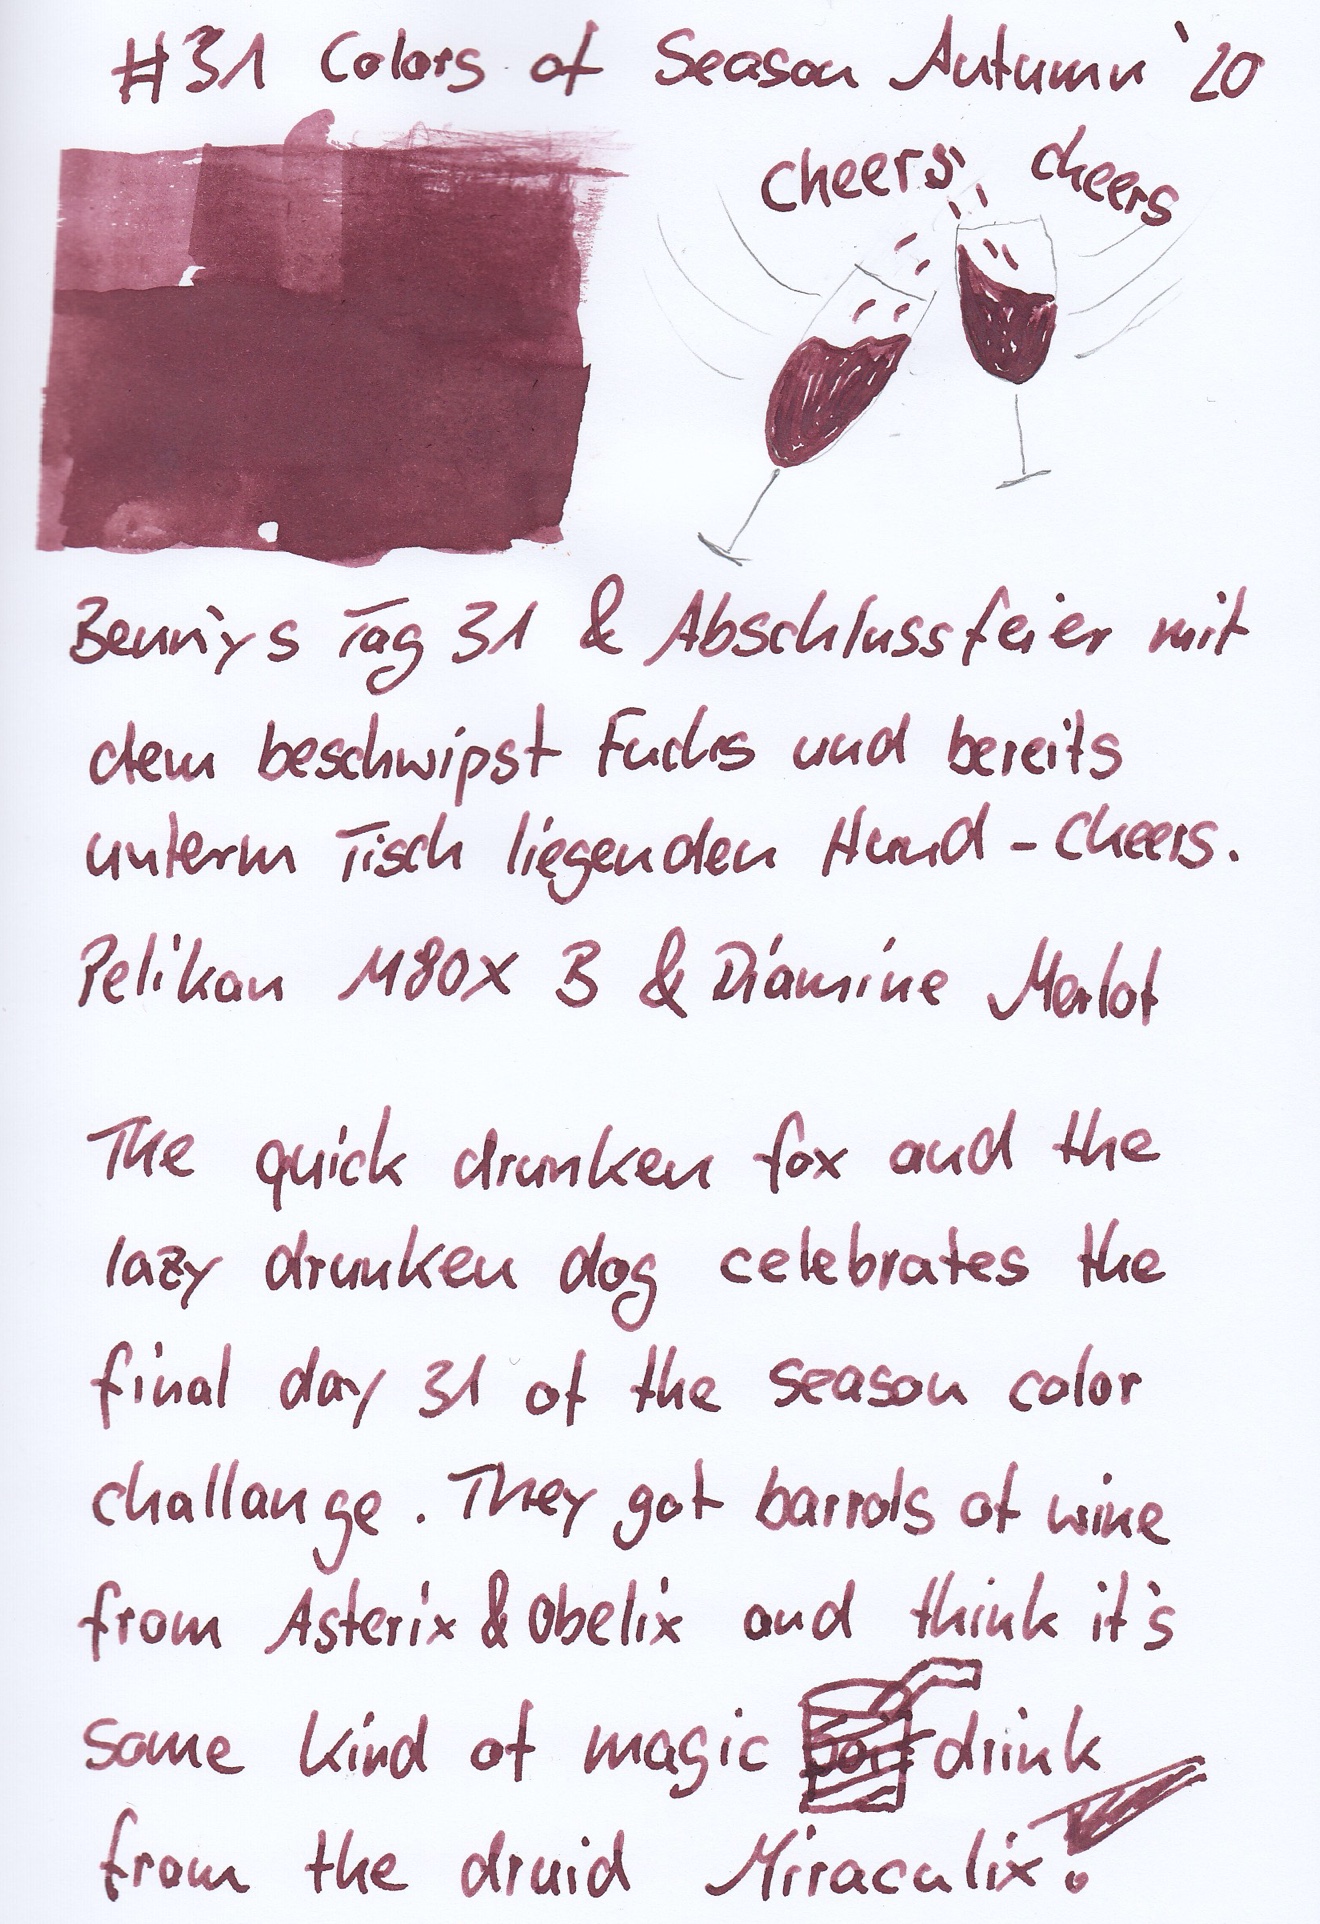 #31 Colors of Season Autumn '20
cheers cheers
Bennys Tag 31 & Abschlussfeier mit
dem beschwipst Fuchs und bereits
unterm Tisch liegenden Hund - Cheers.
Pelikan M80X B & Diamine Merlot
The quick drunken fox and the
lazy drunken dog celebrates the
final day 31 of the season color
challange. They got barrols of wine
from Asterix & Obelix and think it's
some kind of magic drink
from the druid Miraculix!